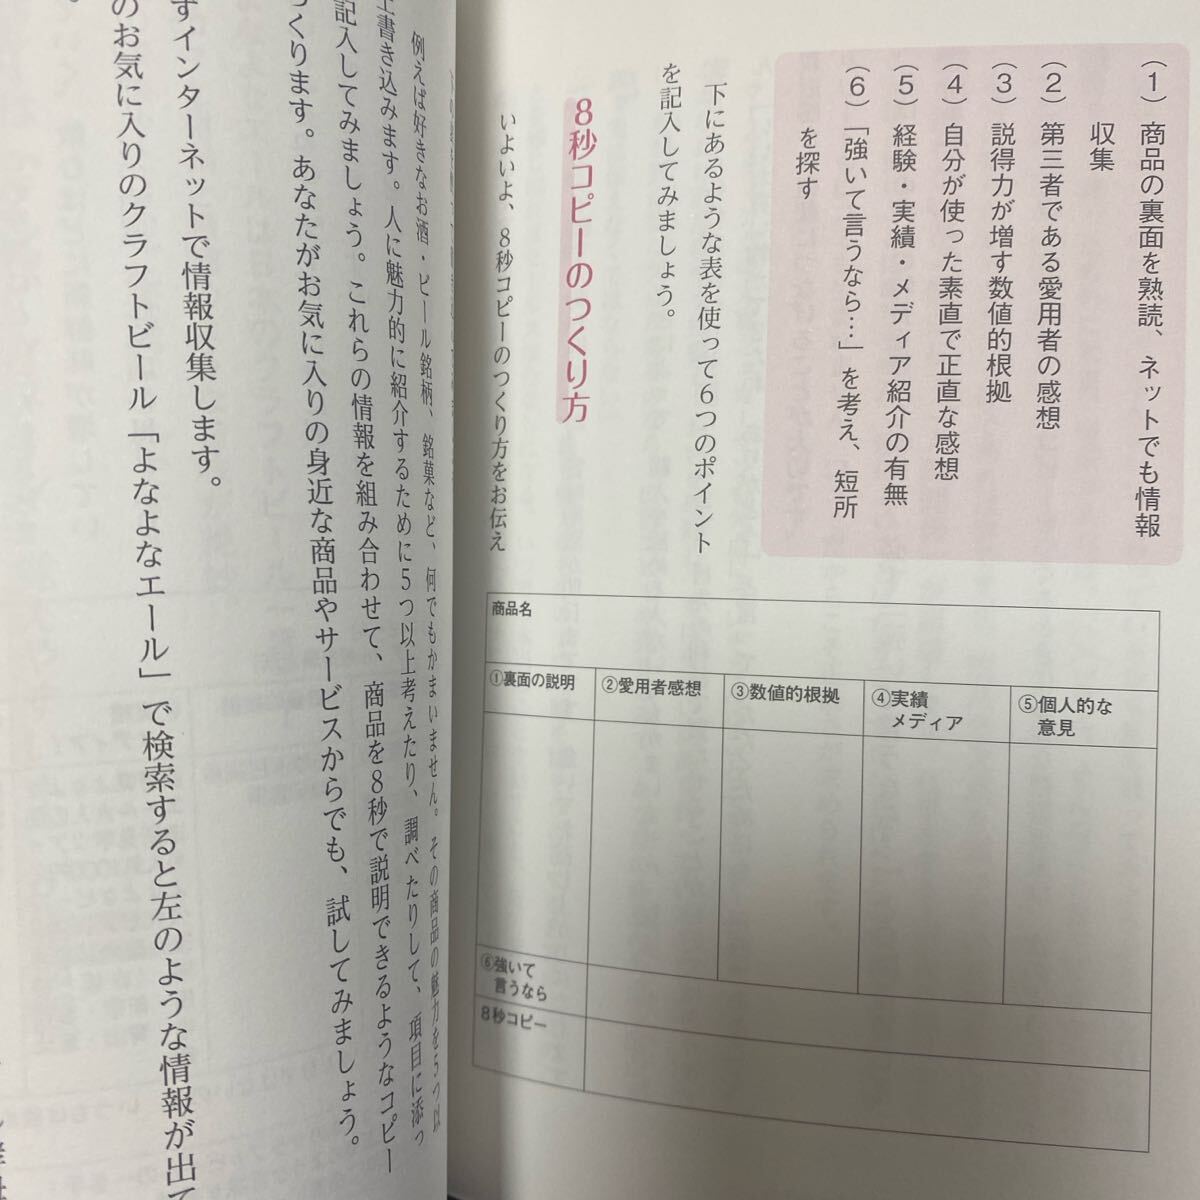 （1）商品の裏面を熟読、ネットでも情報
収集
（2）第三者である愛用者の感想
（3）説得力が増す数値的根拠
（4）自分が使った素直で正直な感想
（5）経験・実績・メディア紹介の有無
（6）「強いて言うなら…」を考え、短所
を探す
下にあるような表を使って6つのポイント
を記入してみましょう。
8秒コピーのつくり方
いよいよ、8秒コピーのつくり方をお伝え
商品名
①裏面の説明
②愛用者感想
③数値的根拠
④実績
メディア
⑤個人的な
意見
⑥強いて
言うなら
8秒コピー
例えば好きなお酒・ビール銘柄、銘菓など、何でもかまいません。その商品の魅力を5つ以
上書き込みます。人に魅力的に紹介するために5つ以上考えたり、調べたりして、項目に添っ
記入してみましょう。これらの情報を組み合わせて、商品を8秒で説明できるようなコピー
つくります。あなたがお気に入りの身近な商品やサービスからでも、試してみましょう。
ずインターネットで情報収集します。
のお気に入りのクラフトビール「よなよなエール」で検索すると左のような情報が出て